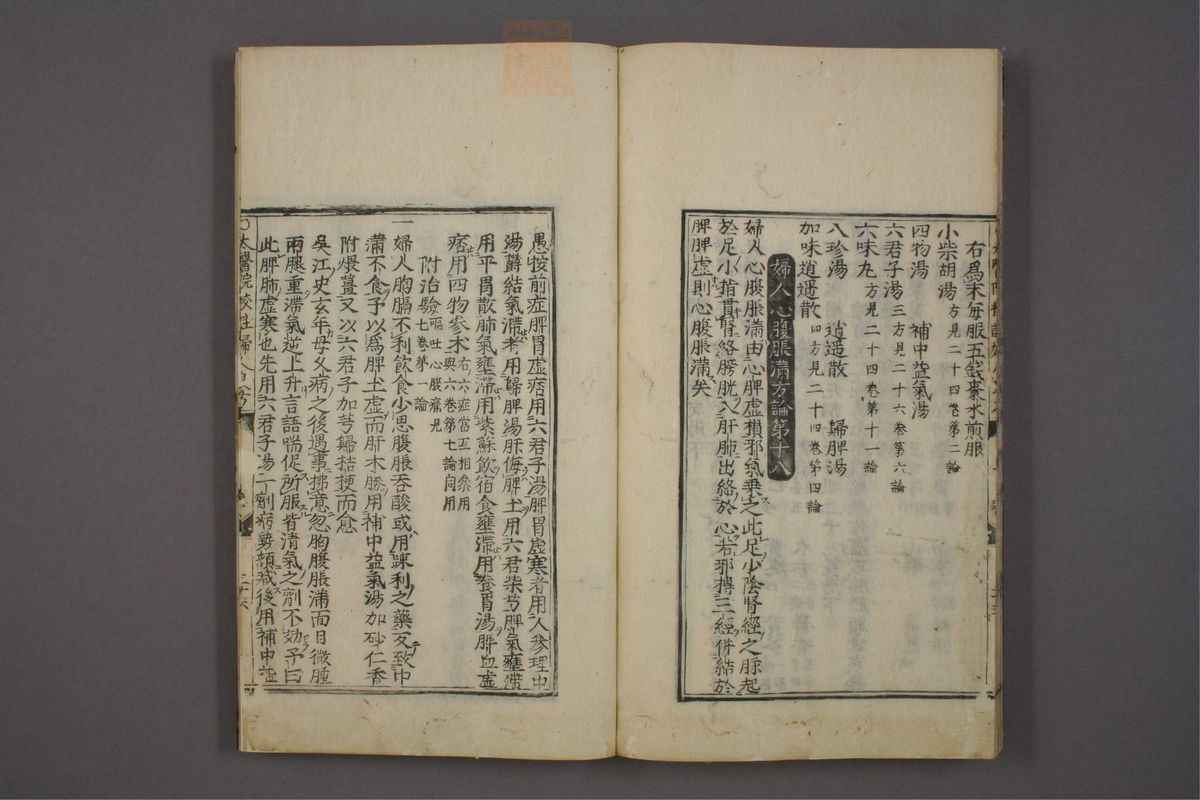 右爲末每服五錢棗水煎服
小柴胡湯 方見二十四卷第二論
四物湯 補中益氣湯
六君子湯 三方見二十六卷第六論
六味丸 方見二十四卷第十一論
八珍湯 逍遥散 歸脾湯
加味逍遥散 四方見二十四卷第四論
婦人心腹脹滿方論第十八
婦人心腹脹滿由心脾虛損邪氣乗之此足少陰腎經之脈起
於足小指貫腎絡膀胱入肝肺出絡於心若邪搏三經併結於
脾脾虛則心腹脹滿矣
愚按前症脾胃虛痞用六君子湯脾胃虛寒者用人參理中
湯欝結氣滯者用歸脾湯肝侮脾土用六君柴芍脾氣壅滯
用平胃散肺氣壅滯用紫蘇飲宿食壅滯用養胃湯脾血虛
痞用四物參朮 右六症當互相叅用與六卷第七論同用
附治驗 嘔吐心腹痛見七卷第一論
一婦人胸膈不利飲食少思腹脹吞酸或用疎利之藥反致中
滿不食予以爲脾土虛而肝木勝用補中益氣湯加砂仁香
附煨薑又以六君子加芎歸桔梗而愈
吳江史玄年母久病之後遇事拂意忽胸腹脹滿面目微腫
兩腿重滯氣逆上升言語喘促所服皆清氣之劑不効予曰
此脾肺虛寒也先用六君子湯一劑病勢頗减後用補中益
〇太醫院校註婦人良方